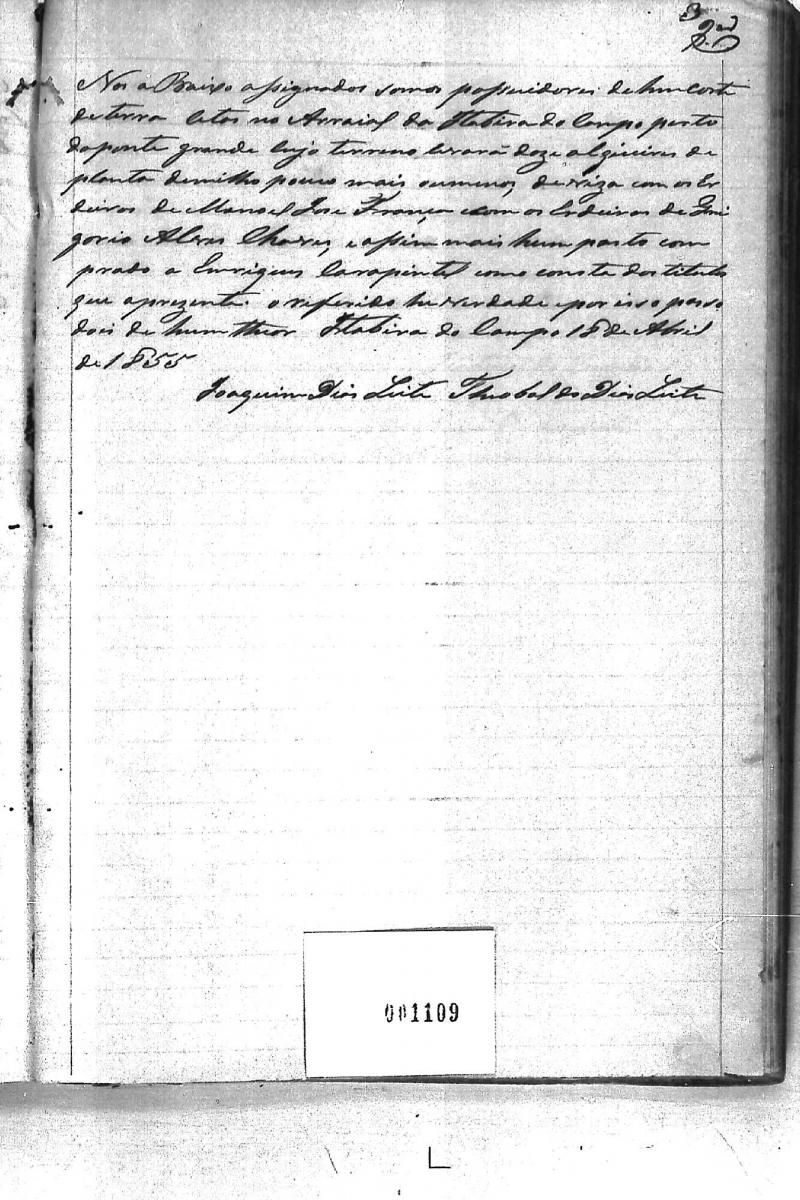 3
Nos a Baixo assignados somos possuidores de hum corte
de terra citos no Arraial da Itabira do Campo perto
da ponte grande cujo terreno levará doze alqueires de
planta de milho pouco mais oumenos, deviza com os Er
deiros de Manoel Jose França e com os Erdeiros de Gri
gorio Alves Chaves, e assim mais hum pasto com
prado a Enriques Carapinteiro como consta dos titulos
que aprezenta o referido he verdade e por isso passo
dois de hum theor Itabira do Campo 18 de Abril
de 1855
Joaquim Dias Leite Theobaldo Dias Leite
001109